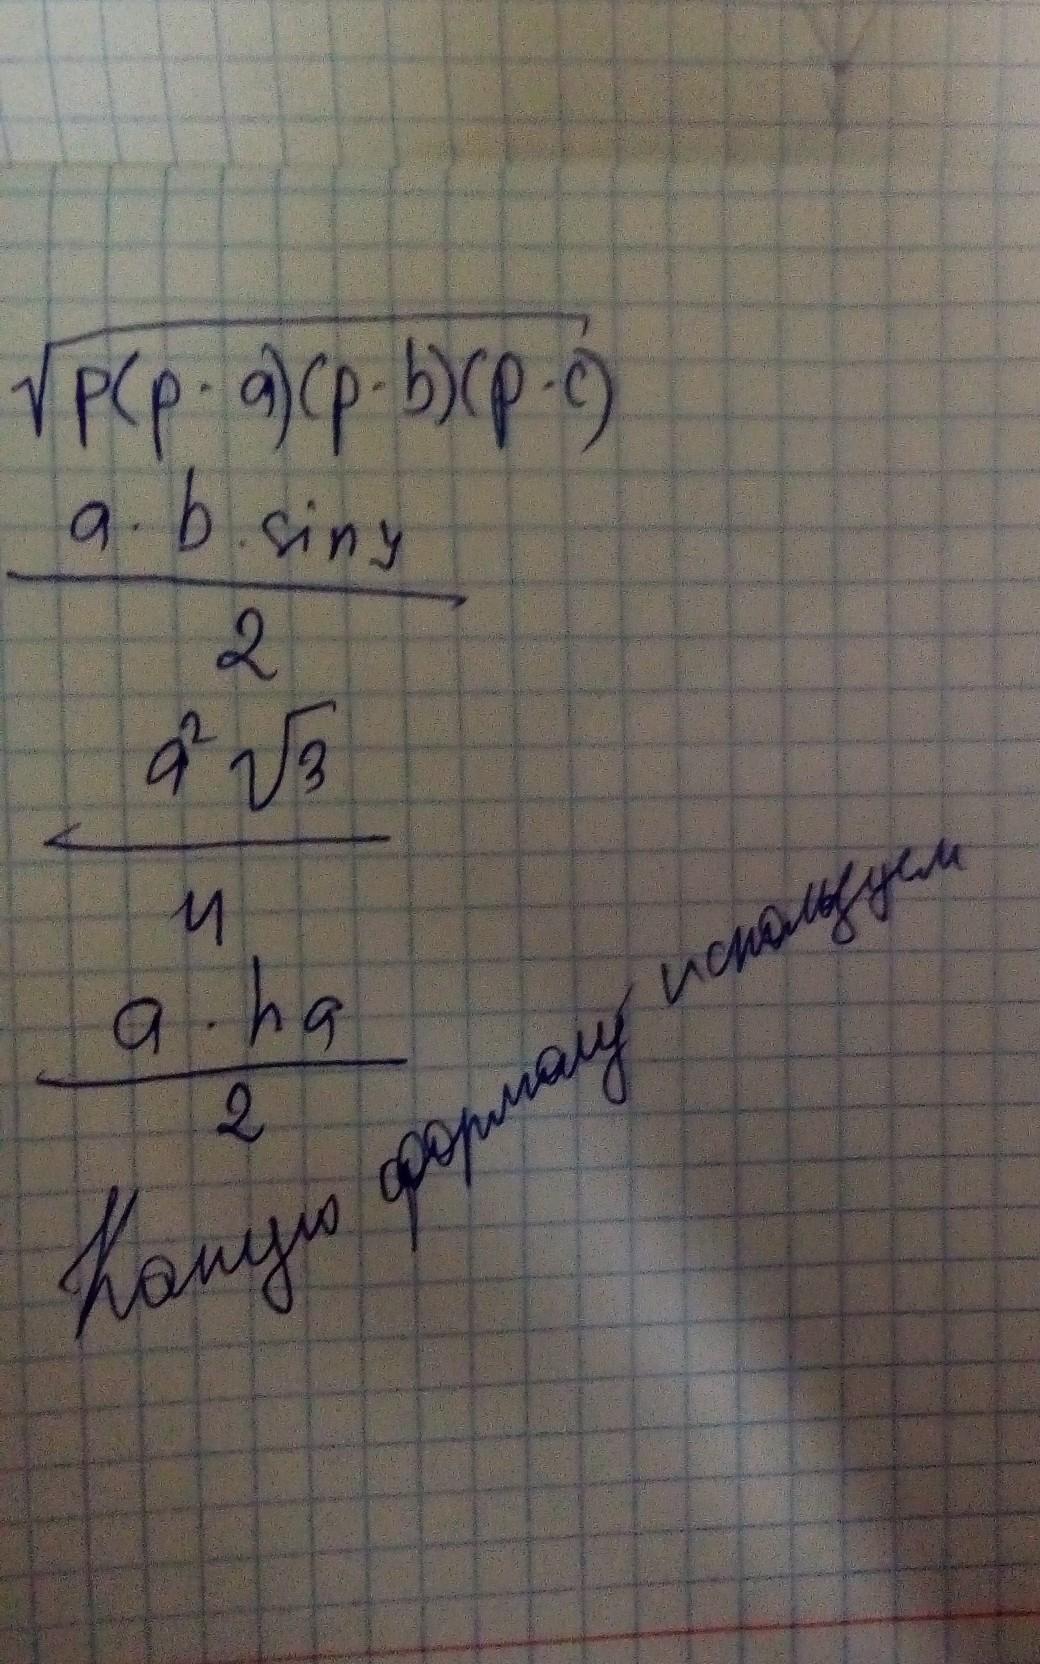 √p(p·a)(p·b)(p·c)
a·b·siny
2
a² √3
4
a · ha
2
Какую формулу используем